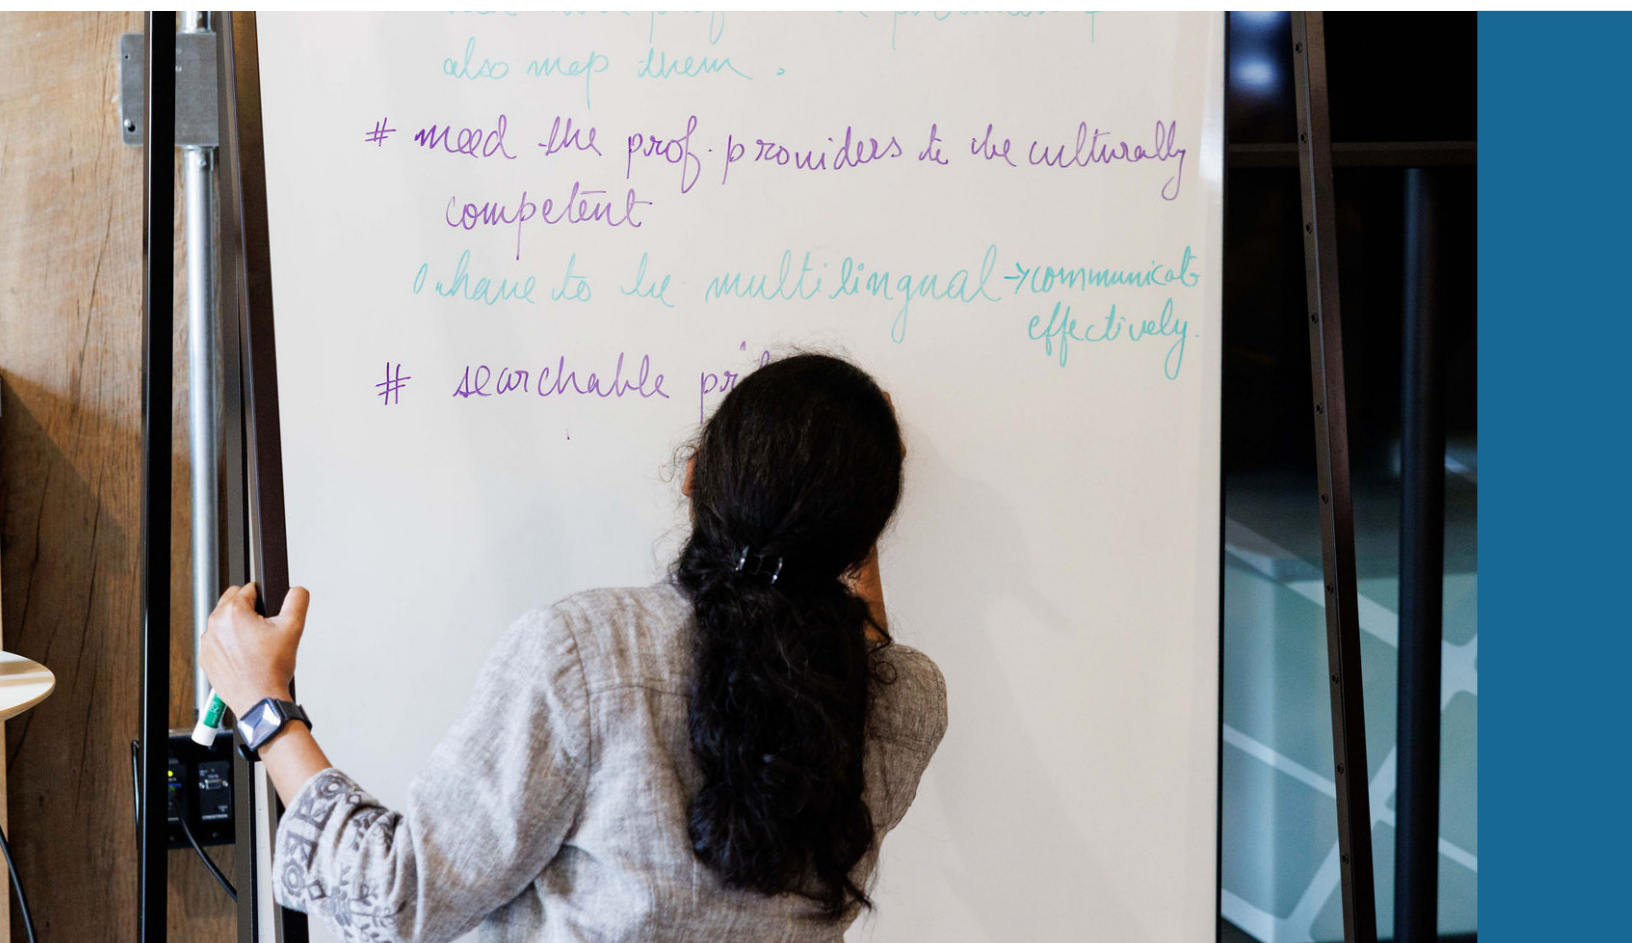 also map them.
# need the prof. providers to be culturally
competent
have to be multilingual → communicate
effectively.
# searchable